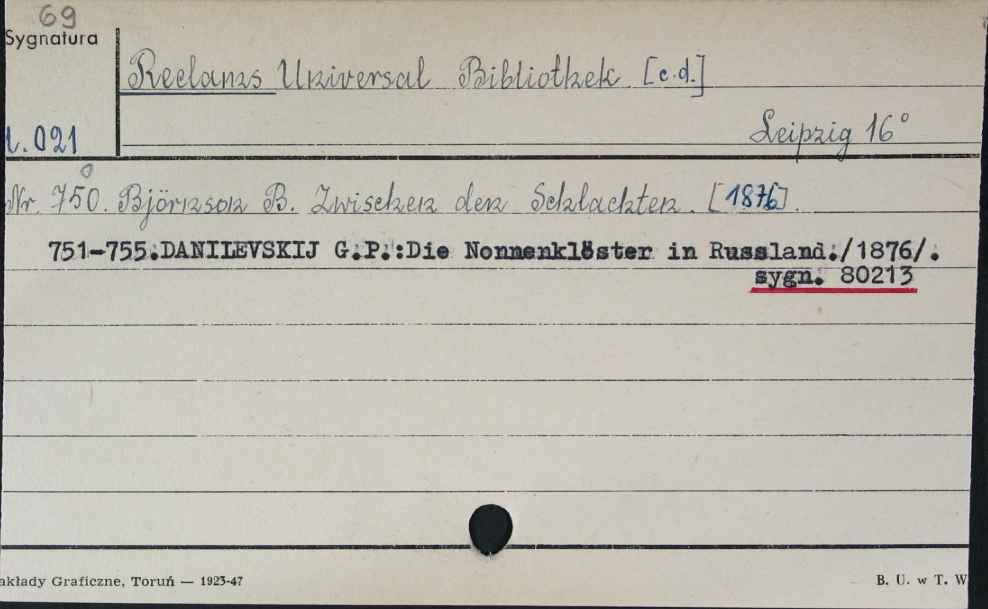 69
Sygnatura
Reclams Universal Bibliothek [c.d.]
t. 021
Leipzig 16°
Nr. 750. Björnson B. Zwischen den Schlachten. [1876].
751-755.DANILEVSKIJ G.P.:Die Nonnenklöster in Russland./1876/.
sygn. 80213
akłady Graficzne, Toruń — 1923-47
B. U. w T. W